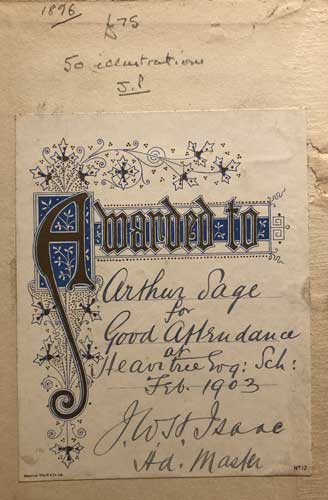 1896
£75
50 illustrations
J.P
Awarded to
Arthur Sage
for
Good Attendance
at
Heavitree Eng: Sch:
Feb. 1903
J. W. H. Isaac
Hd. Master
Nº 12